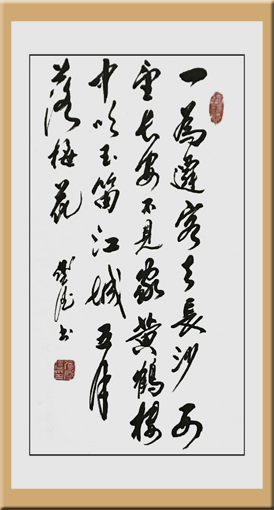 一為遷客去長沙西
望长安不見家黄鶴樓
中吹玉笛江城五月
落梅花
书